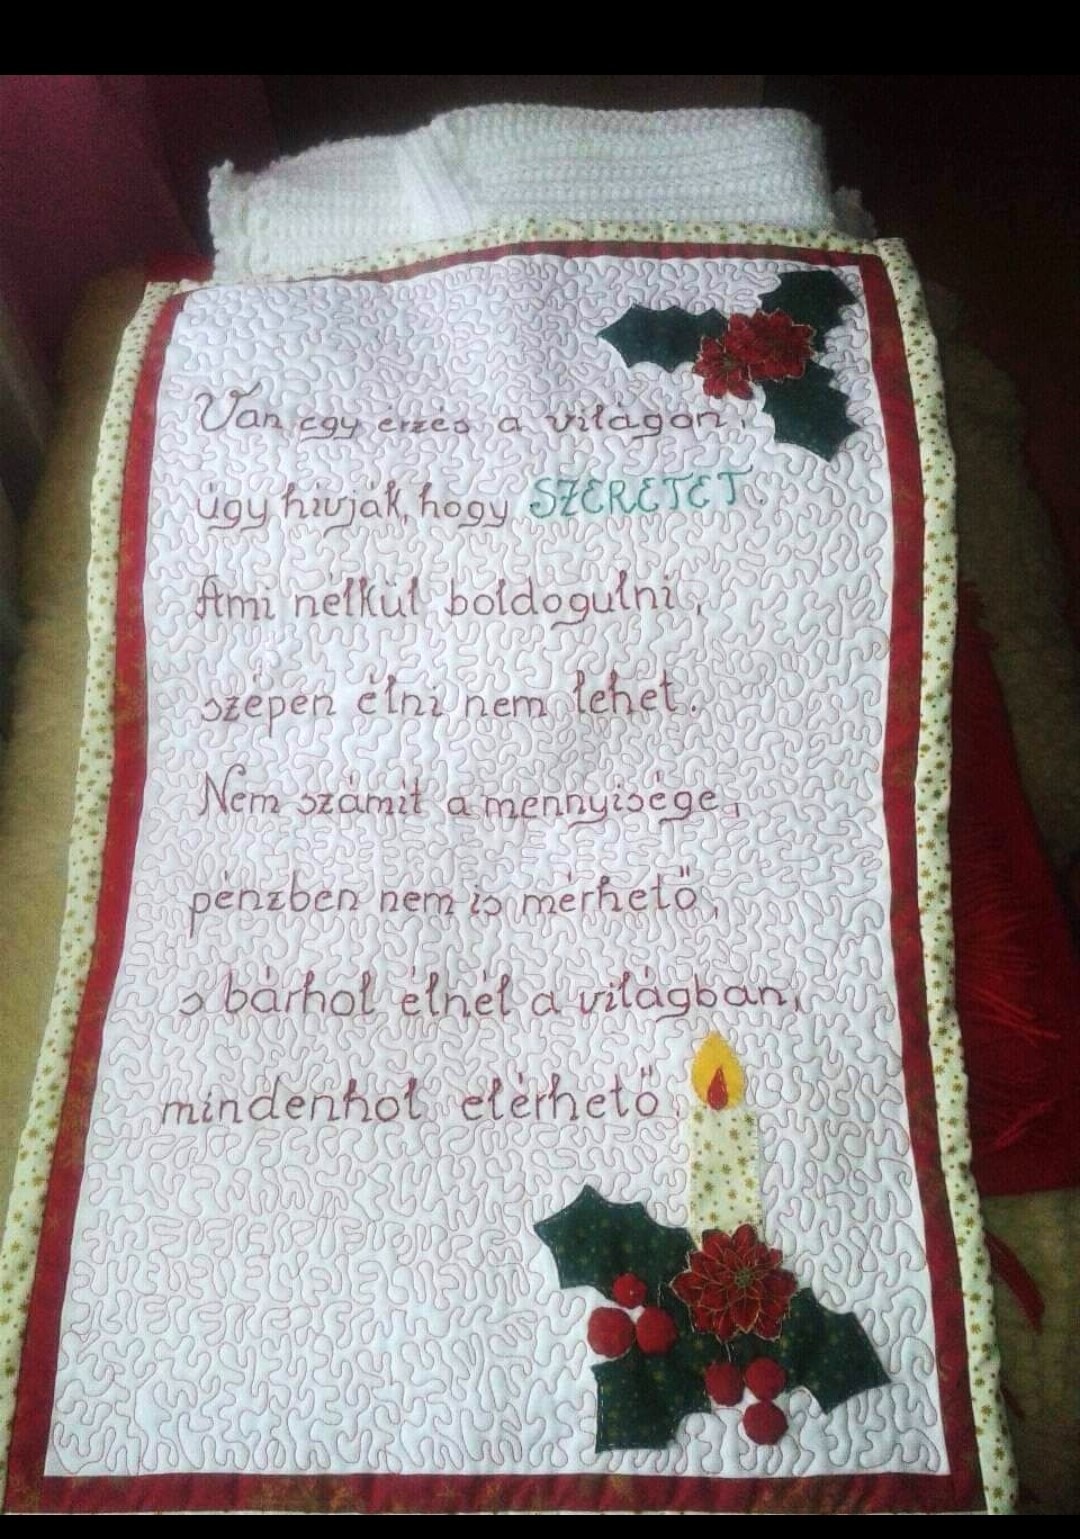 Van egy érzés a világon,
úgy hívják, hogy SZERETET.
Ami nélkül boldogulni,
szépen élni nem lehet.
Nem számít a mennyisége,
pénzben nem is mérhető,
s bárhol élnél a világban,
mindenhol elérhető.